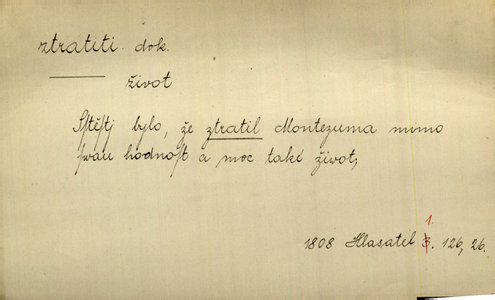 ztratiti. dok.
život
Sstěstj bylo, že ztratil Montezuma mimo
swau hodnost a moc také život;
1.
1808 Hlasatel 3. 126, 26.